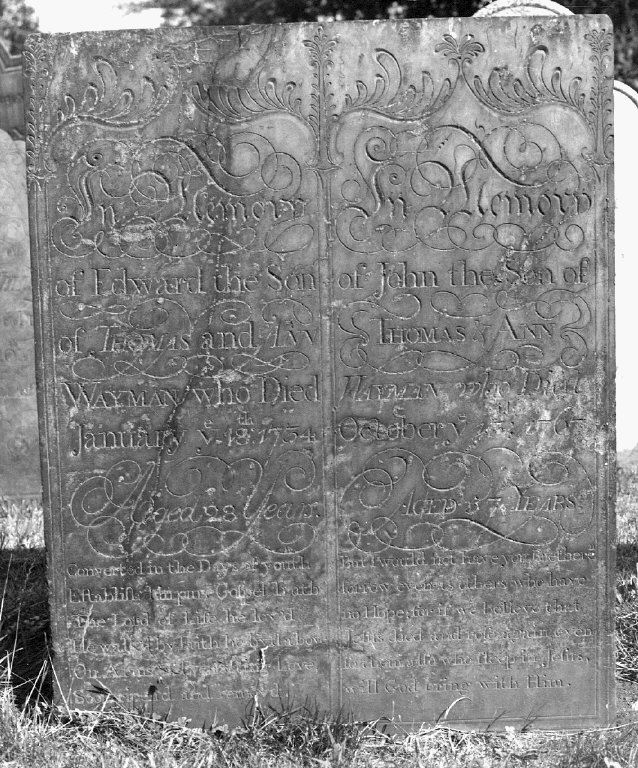 In Memory
of Edward the Son
of THOMAS and ANN
WAYMAN who Died
January ye 18th: 1734
Aged 28 Years.
Converted in the Days of youth
Establish'd in pure Gospel Truth
The Lord of Life he lov'd
He walked by Faith
On
and remov'd
In Memory
of John the Son of
THOMAS & ANN
WAYMAN who Died
October ye 1767
AGED 57 YEARS
But I would not have you
sorrow even as others who have
no Hope, for if we believe that
Jesus died and rose again even
so them also who sleep in Jesus,
will God bring with Him.